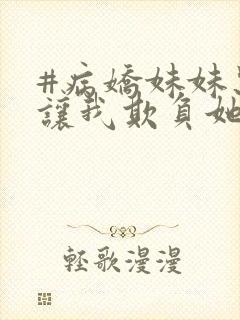 #病嬌妹妹
讓我欺負她
輕歌漫漫